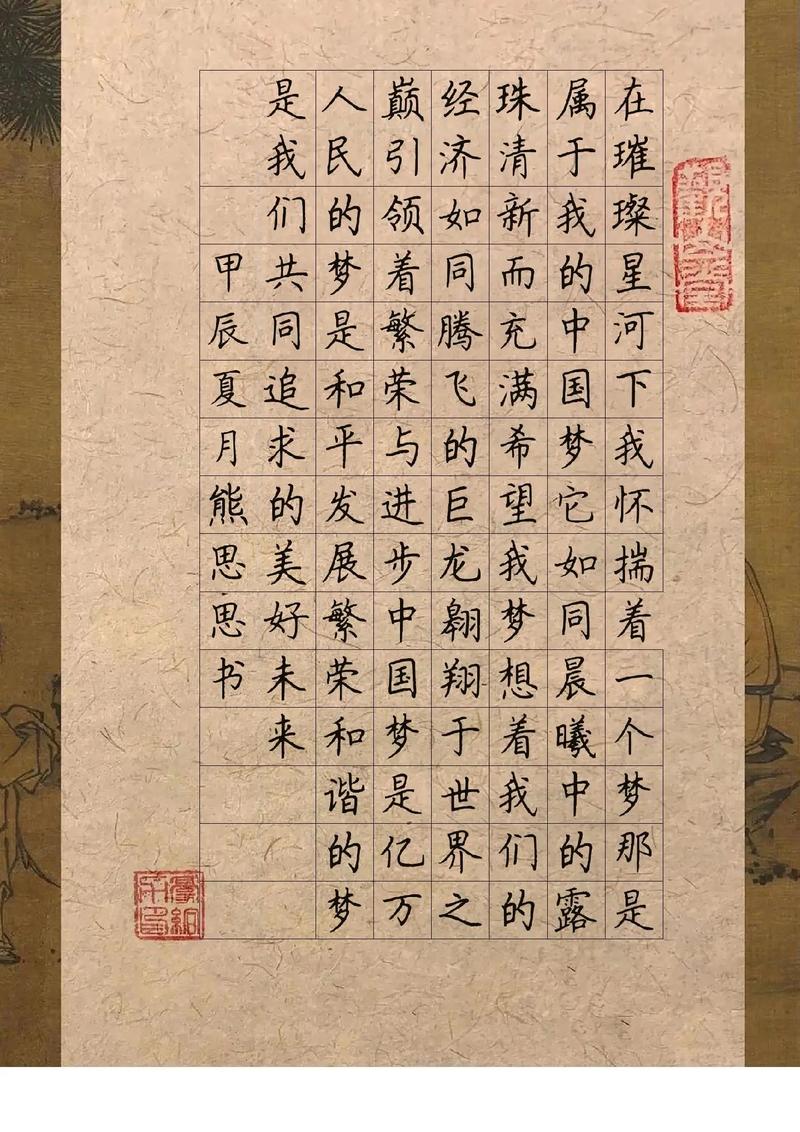 在璀璨星河下我怀揣着一个梦那是
属于我的中国梦它如同晨曦中的露
珠清新而充满希望我梦想着我们的
经济如同腾飞的巨龙翱翔于世界之
巅引领着繁荣与进步中国梦是亿万
人民的梦是和平发展繁荣和谐的梦
是我们共同追求的美好未来
甲辰夏月熊思思书